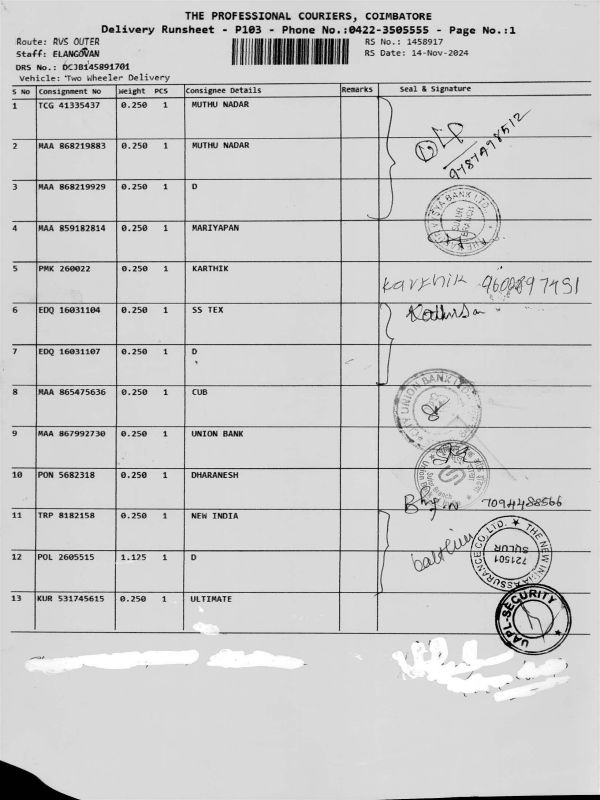 THE PROFESSIONAL COURIERS, COIMBATORE
Delivery Runsheet - P103 - Phone No.:0422-3505555 - Page No.:1
Route: RVS OUTER
RS No.: 1458917
Staff: ELANGOVAN
RS Date: 14-Nov-2024
DRS No.: DCJB145891701
Vehicle: Two Wheeler Delivery
S No Consignment No Weight PCS Consignee Details Remarks Seal & Signature
1 TCG 41335437 0.250 1 MUTHU NADAR
2 MAA 868219883 0.250 1 MUTHU NADAR
9787998512
3 MAA 868219929 0.250 1 D
4 MAA 859182814 0.250 1 MARIYAPAN
BANK LTD.
SULUR
BRANCH
5 PMK 260022 0.250 1 KARTHIK
karthik 9600897491
6 EDQ 16031104 0.250 1 SS TEX
7 EDQ 16031107 0.250 1 D
8 MAA 865475636 0.250 1 CUB
CITY UNION BANK LTD.
9 MAA 867992730 0.250 1 UNION BANK
10 PON 5682318 0.250 1 DHARANESH
7094488566
11 TRP 8182158 0.250 1 NEW INDIA
12 POL 2605515 1.125 1 D
THE NEW INDIA ASSURANCE CO. LTD.
721501
SULUR
13 KUR 531745615 0.250 1 ULTIMATE
UAPL-SECURITY